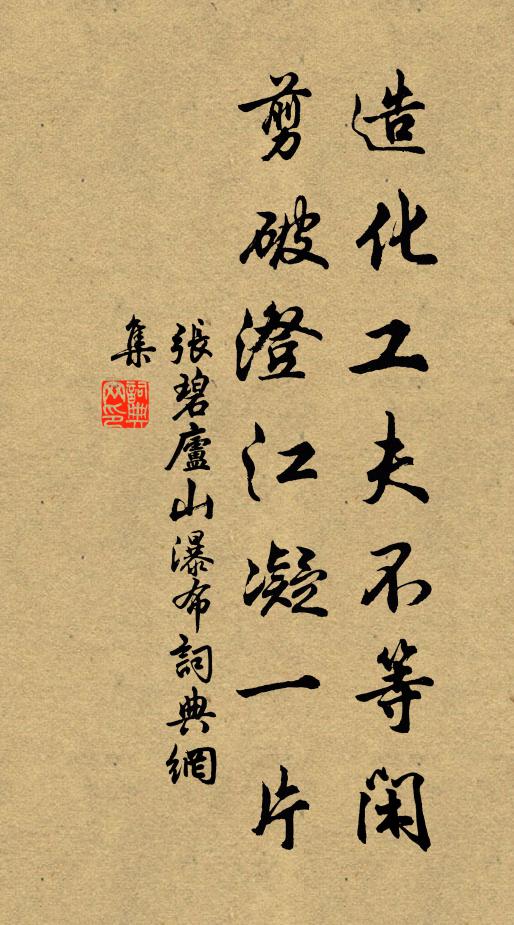 造化工夫不等閑
剪破澄江凝一片
張碧廬山瀑布詞典網
集
詞典
网印